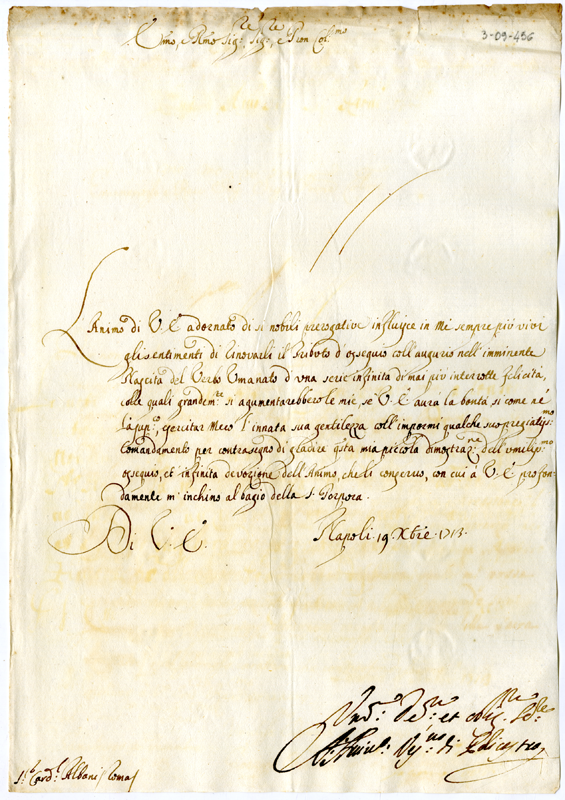 3-09-456
Emo, e Rmo Sig.re Sig.re, e Pron Col.mo
L'Animo di V. E.a adornato di si nobili prerogative influisce in me sempre più vivi
gli sentimenti di rinovarli il Tributo d'ossequio coll'augurio nell'imminente
Nascita del Verbo Umanato d'una serie infinita di mai più interrotte felicità,
colle quali grandem.te si augumentarebbero le mie se V. E. aura la bontà si come né
la sup.co, esercitar meco l'innata sua gentilezza coll'impormi qualche suo pregiatiss.mo
Comandamento per contrasegno di gradire q.sta mia piccola dimostraz.ne dell'umilis.mo
ossequio, et infinita devozione dell'Animo, che li conservo, con cui à V. E.a profon-
damente m'inchino al bagio della S. Porpora.
Di V. E.a Napoli 19 Xbre 1713.
Um.o De.o et oblig. Se.re
di Policastro
S.r Card.l Albani Roma